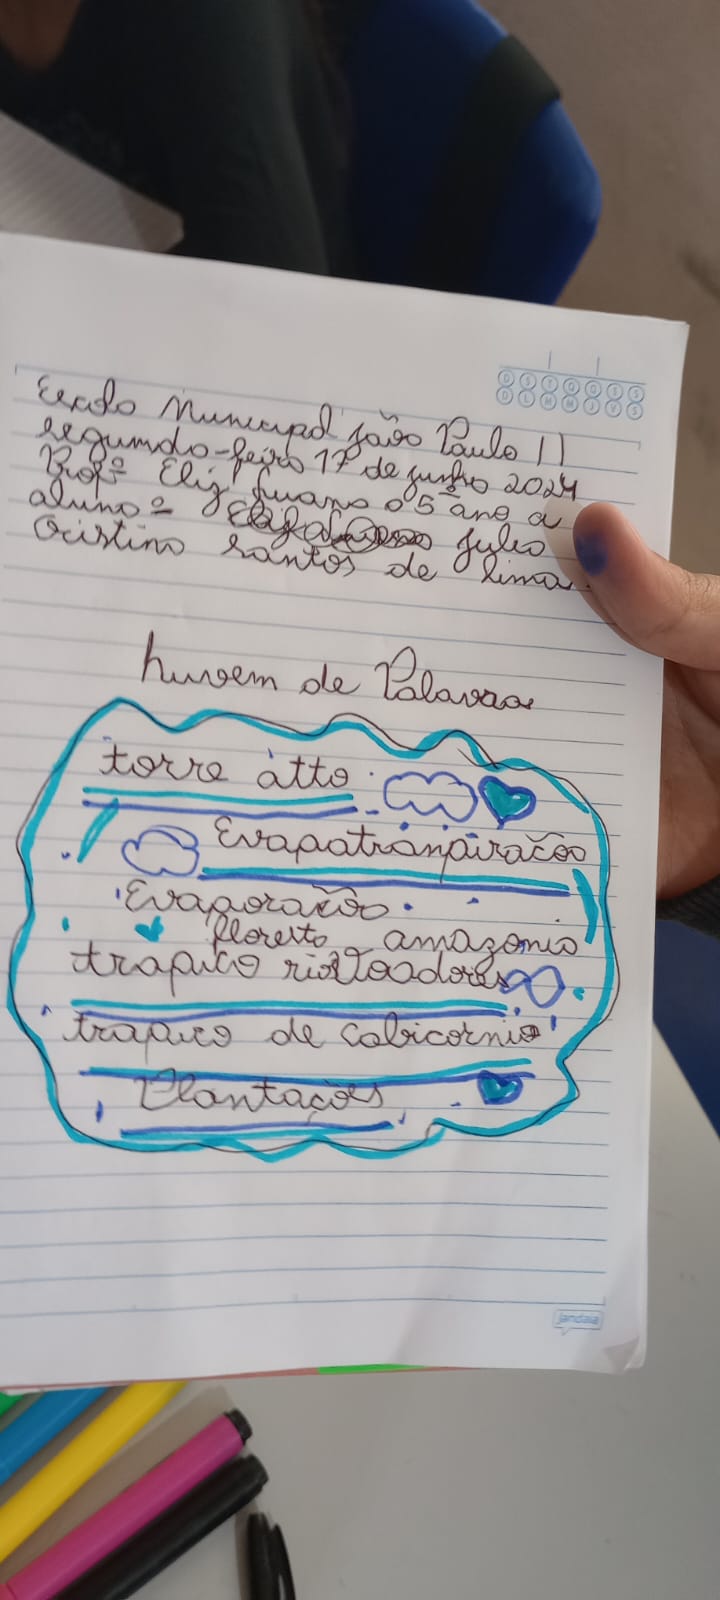 Escola Municipal João Paulo II
segunda-feira 17 de junho 2024
Profª Eliz o 5º ano a
aluno º Julia
Cristina Santos de lima.
D S T Q Q S S
D L M M J V S
nuvem de Palavras
torre atto
Evapatranpiração
Evaporação
floresta amazonia
trapico rios voadores
trapico de cabicornio
Plantações
jandaia